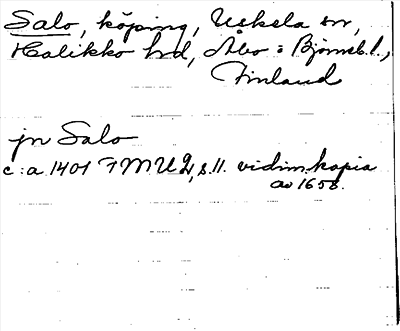 Salo, köping, Uskela sn,
Halikko hd, Åbo : Björneb. l.,
Finland
jn Salo
c:a 1401 FMU 2, s. 11. vidim. kopia
av 1658.